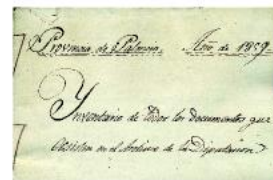 Provincia de Palencia. Año de 1859.
Inventario de todos los documentos que
existen en el Archivo de la Diputacion